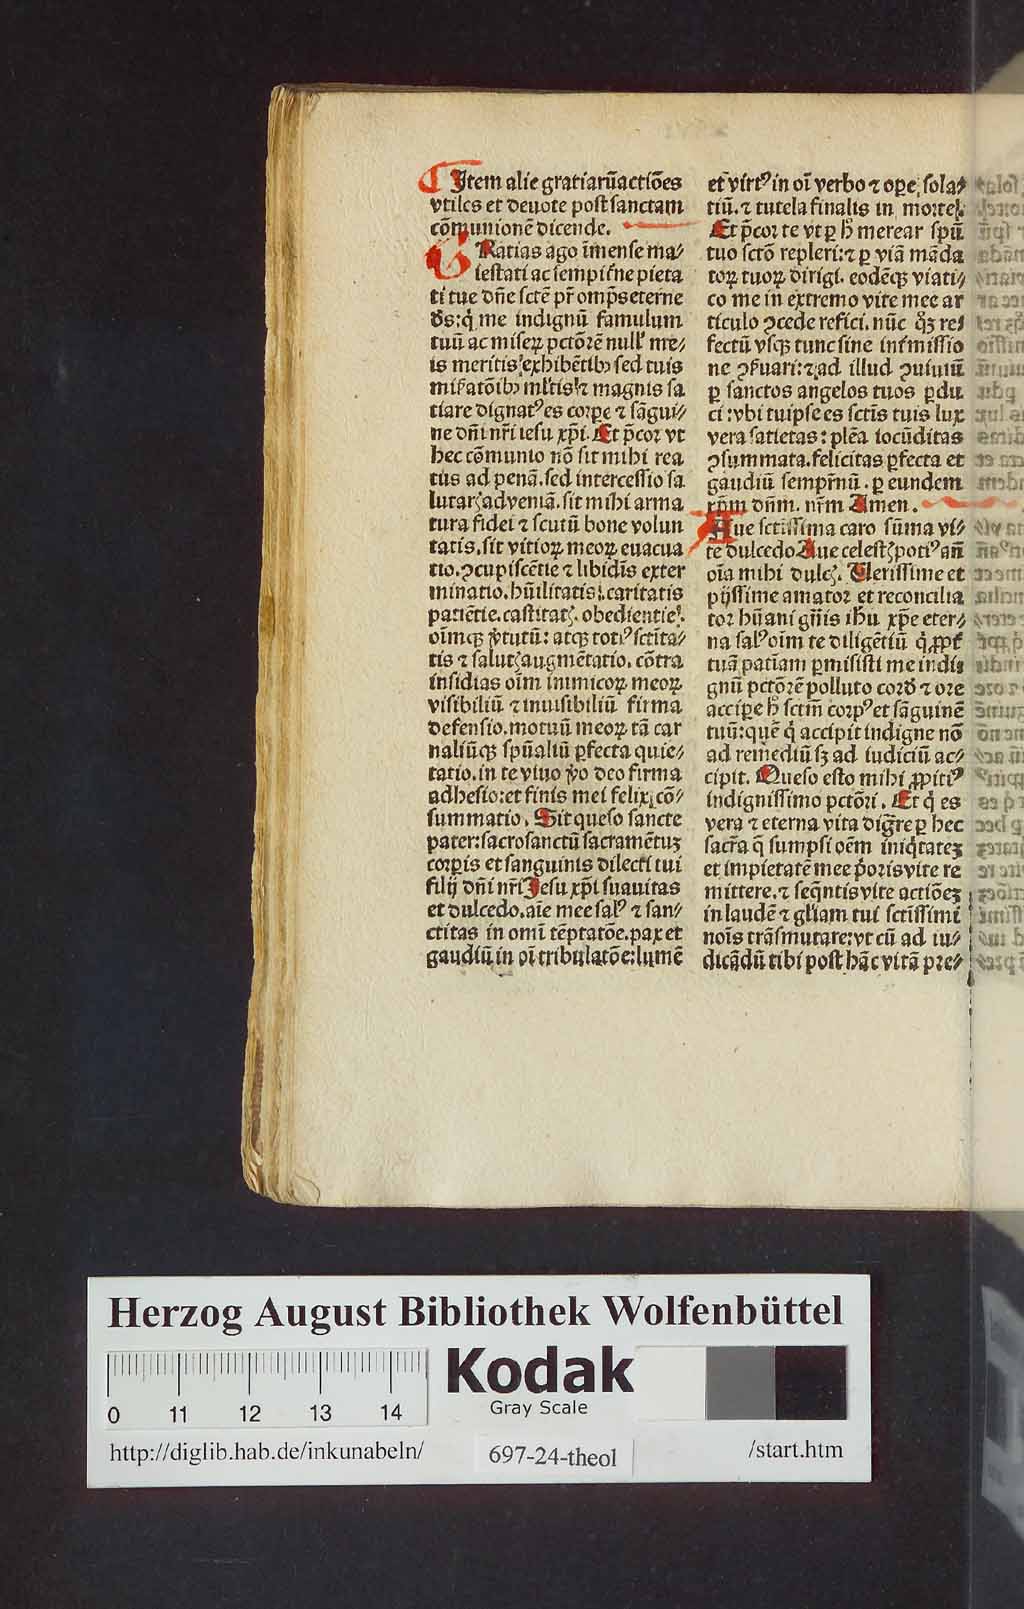 ¶ Item alie gratiaꝝ actiōes
vtiles et deuote post sanctam
cōmunionē dicende.
GRatias ago īmense ma⸗
iestati ac sempit̄ne pieta
ti tue dn̄e sctē pr̄ omp̄s eterne
ds̄: q̇ me indignū famulum
tuū ac miseꝝ pctōrē null' me⸗
is meritis exhibētibꝫ sed tuis
mis̄atōibꝫ ml'tis ⁊ magnis sa
tiare dignat⁹ es corpe ⁊ sāgui⸗
ne dn̄i nr̄i iesu xp̄i. Et p̄cor vt
hec cōmunio nō sit mihi rea
tus ad penā. sed intercessio sa
lutarꝭ ad veniā. sit mihi arma
tura fidei ⁊ scutū bone volun
tatis. sit vitioꝝ meoꝝ euacua
tio. ꝯcupiscētie ⁊ libidīs exter
minatio. hūilitatis. caritatis
patiētie. castitatꝭ. obedientie.
oīmqꝫ v̓tutū: atqꝫ toti⁹ sctīta⸗
tis ⁊ salutꝭ augmētatio. cōtra
insidias oīm inimicoꝝ meoꝝ
visibiliū ⁊ inuisibiliū firma
defensio. motuū meoꝝ tā car
naliūqꝫ spūaliū ꝑfecta quie⸗
tatio. in te viuo v̓o deo firma
adhesio: et finis mei felix cō⸗
summatio. Sit queso sancte
pater: sacrosanctū sacramētuꝫ
corꝑis et sanguinis dilecti tui
filij dn̄i nr̄i Jesu xp̄i suauitas
et dulcedo. aīe mee sal⁹ ⁊ san⸗
ctitas in omī tēptatōe. pax et
gaudiū in oī tribulatōe: lumē
et virt⁹ in oī verbo ⁊ oꝑe, sola⸗
tiū. ⁊ tutela finalis in morte.
Et p̄cor te vt ꝑ hͦ merear spū
tuo sctō repleri: ⁊ ꝑ viā māda
toꝝ tuoꝝ dirigi. eodēqꝫ viati⸗
co me in extremo vite mee ar
ticulo ꝯcede refici. nūc qͦꝫ re⸗
fectū vsqꝫ tunc sine int̄missio
ne ꝯs̄uari: ⁊ ad illud ꝯuiuiū
ꝑ sanctos angelos tuos ꝑdu
ci: vbi tuipse es sctīs tuis lux
vera satietas: plēa iocūditas
ꝯsummata. felicitas ꝑfecta et
gaudiū sempr̄nū. ꝑ eundem
xp̄m dn̄m. nr̄m Amen.
AUe sctīssima caro sūma vi⸗
te dulcedo Aue celestꝭ poti⁹ an̄
oīa mihi dulcꝭ. Clerissime et
pijssime amator et reconcilia
tor hūani gn̄is ih̄u xp̄e eter⸗
na sal⁹ oīm te diligētiū q̇ ꝓpt̄
tuā patīam ꝑmisisti me indi⸗
gnū pctōrē polluto cord̄ ⁊ ore
accipe hͦ sctm̄ corp⁹ et sāguinē
tuū: quē q̇ accipit indigne nō
ad remediū sꝫ ad iudiciū ac⸗
cipit. Queso esto mihi ꝓpiti⁹
indignissimo pctōri. Et q̇ es
vera ⁊ eterna vita dig̅re ꝑ hec
sacr̄a q̄ sumpsi oēm iniqͥtateꝫ
et impietatē mee p̓oris vite re
mittere. ⁊ seq̄ntis vite actiōeꝫ
in laudē ⁊ gl'iam tui sctīssimi
noīs trāsmutare: vt cū ad iu⸗
dicādū tibi post hāc vitā pre⸗
Herzog August Bibliothek Wolfenbüttel
Kodak
Gray Scale
0 11 12 13 14
http://diglib.hab.de/inkunabeln/
697-24-theol
/start.htm